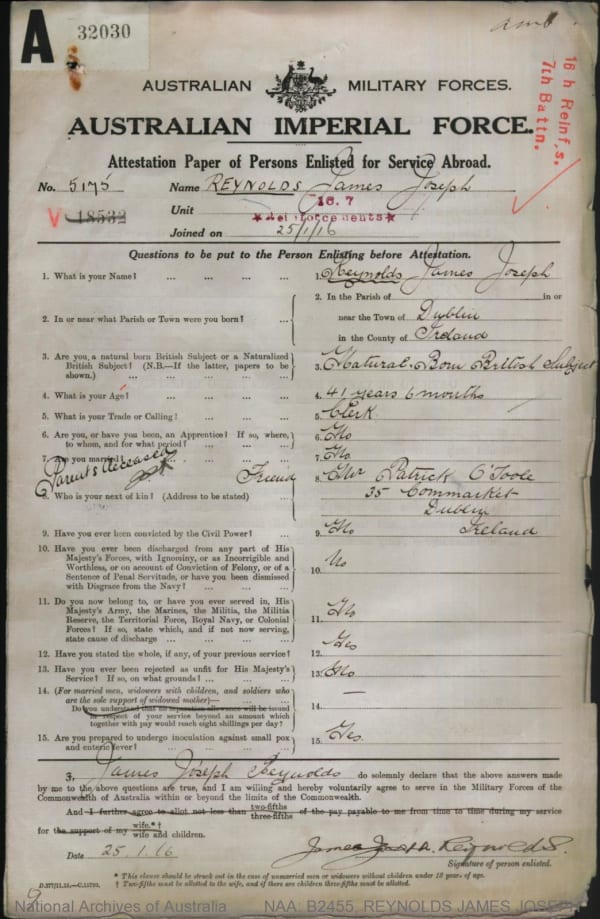 A 32030
16 h Reinf,s.
7th Battn.
AUSTRALIAN MILITARY FORCES.
AUSTRALIAN IMPERIAL FORCE.
Attestation Paper of Persons Enlisted for Service Abroad.
No. 5175 Name REYNOLDS James Joseph
V 18532 Unit 16. 7
Reinforcements
Joined on 25/1/16
Questions to be put to the Person Enlisting before Attestation.
1. What is your Name? ... ... ... ... 1. Reynolds James Joseph
2. In or near what Parish or Town were you born? ... 2. In the Parish of in or
near the Town of Dublin
in the County of Ireland
3. Are you a natural born British Subject or a Naturalized
British Subject? (N.B.—If the latter, papers to be
shown.) ... ... ... ... ... 3. Natural Born British Subject
4. What is your Age? ... ... ... ... 4. 41 years 6 months
5. What is your Trade or Calling? ... ... ... 5. Clerk
6. Are you, or have you been, an Apprentice? If so, where,
to whom, and for what period? ... ... ... 6. No
7. Are you married? ... ... ... ... 7. No
Parents deceased
Friend 8. Mr Patrick O'Toole
8. Who is your next of kin? (Address to be stated) ... 35 Cornmarket
Dublin
Ireland
9. Have you ever been convicted by the Civil Power? ... 9. No
10. Have you ever been discharged from any part of His
Majesty's Forces, with Ignominy, or as Incorrigible and
Worthless, or on account of Conviction of Felony, or of a
Sentence of Penal Servitude, or have you been dismissed
with Disgrace from the Navy? ... ... ... 10. No
11. Do you now belong to, or have you ever served in, His
Majesty's Army, the Marines, the Militia, the Militia
Reserve, the Territorial Force, Royal Navy, or Colonial
Forces? If so, state which, and if not now serving,
state cause of discharge ... ... ... ... 11. No
12. Have you stated the whole, if any, of your previous service? 12. Yes
13. Have you ever been rejected as unfit for His Majesty's
Service? If so, on what grounds? ... ... ... 13. No
14. (For married men, widowers with children, and soldiers who
are the sole support of widowed mother)—
Do you understand that no separation allowance will be issued
in respect of your service beyond an amount which
together with pay would reach eight shillings per day? 14. —
15. Are you prepared to undergo inoculation against small pox
and enteric fever? ... ... ... ... 15. Yes.
I, James Joseph Reynolds do solemnly declare that the above answers made
by me to the above questions are true, and I am willing and hereby voluntarily agree to serve in the Military Forces of the
Commonwealth of Australia within or beyond the limits of the Commonwealth.
And I further agree to allot not less than two-fifths three-fifths of the pay payable to me from time to time during my service
for the support of my wife.*† wife and children.
Date 25.1.16 James Joseph Reynolds.
Signature of person enlisted.
* This clause should be struck out in the case of unmarried men or widowers without children under 18 years of age.
† Two-fifths must be allotted to the wife, and if there are children three-fifths must be allotted.
National Archives of Australia NAA: B2455, REYNOLDS JAMES JOSEPH